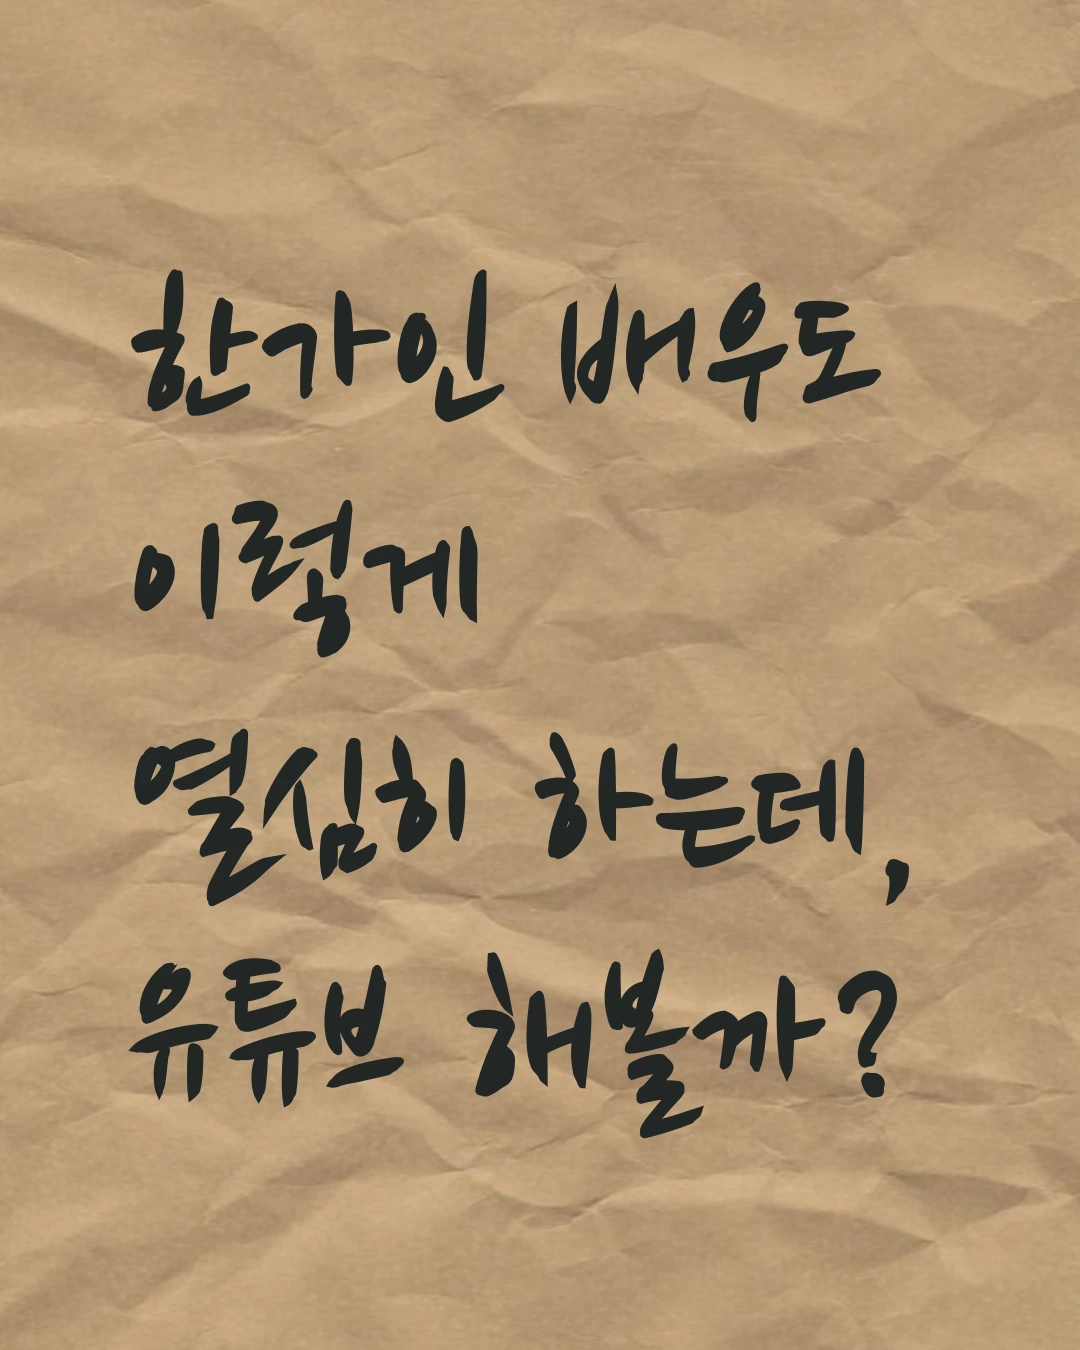 한가인 배우도
이렇게
열심히 하는데,
유튜브 해볼까?